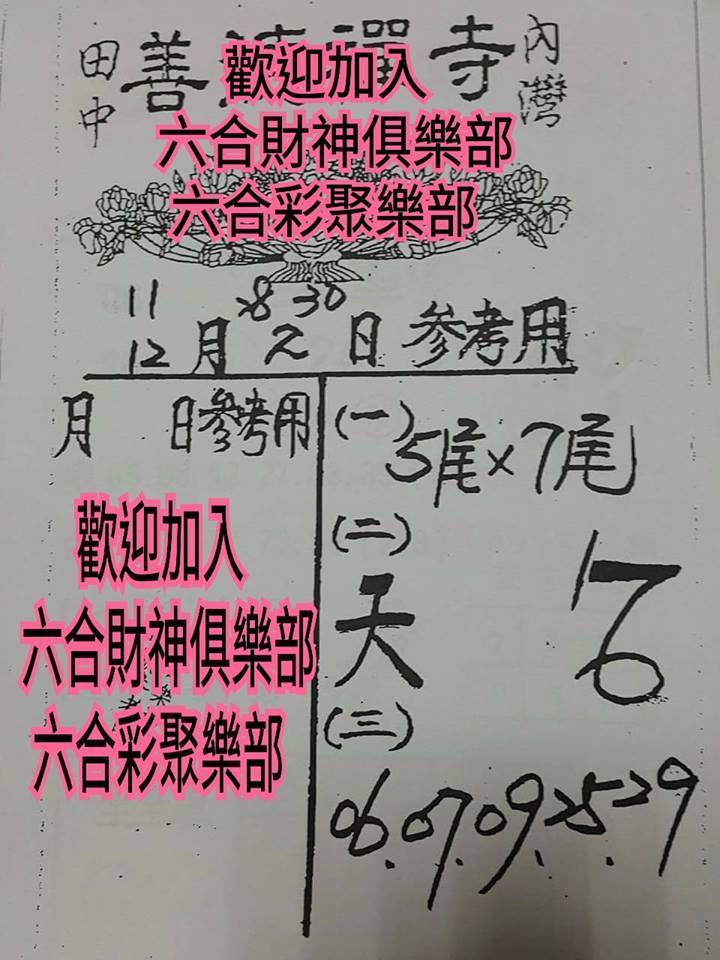 田中
善
寺
內灣
歡迎加入
六合財神俱樂部
六合彩聚樂部
11 28 30
12月 日 參考用
月 日參考用
(一)
5尾×7尾
(二)
天
(三)
06.07.09.25.29
歡迎加入
六合財神俱樂部
六合彩聚樂部